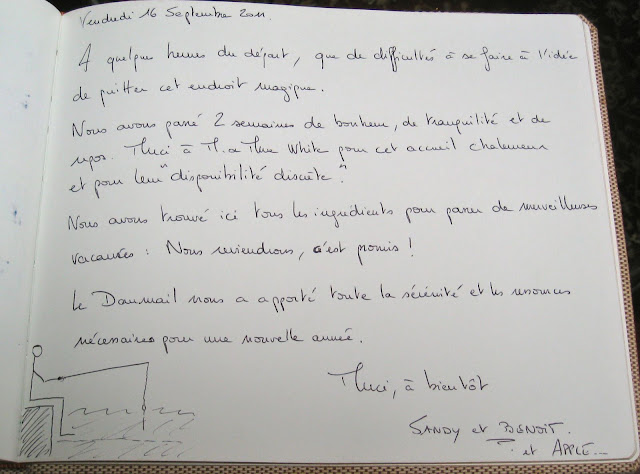 Vendredi 16 Septembre 2011.
A quelques heures du départ, que de difficultés à se faire à l'idée
de quitter cet endroit magique.
Nous avons passé 2 semaines de bonheur, de tranquilité et de
repos. Merci à M. et Mme White pour cet accueil chaleureux
et pour leur "disponibilité discrète".
Nous avons trouvé ici tous les ingrédients pour passer de merveilleuses
vacances : Nous reviendrons, c'est promis !
Le Daumail nous a apporté toute la sérénité et les ressources
nécessaires pour une nouvelle année.
Merci, à bientôt
SANDY et BENOIT.
et APPLE...